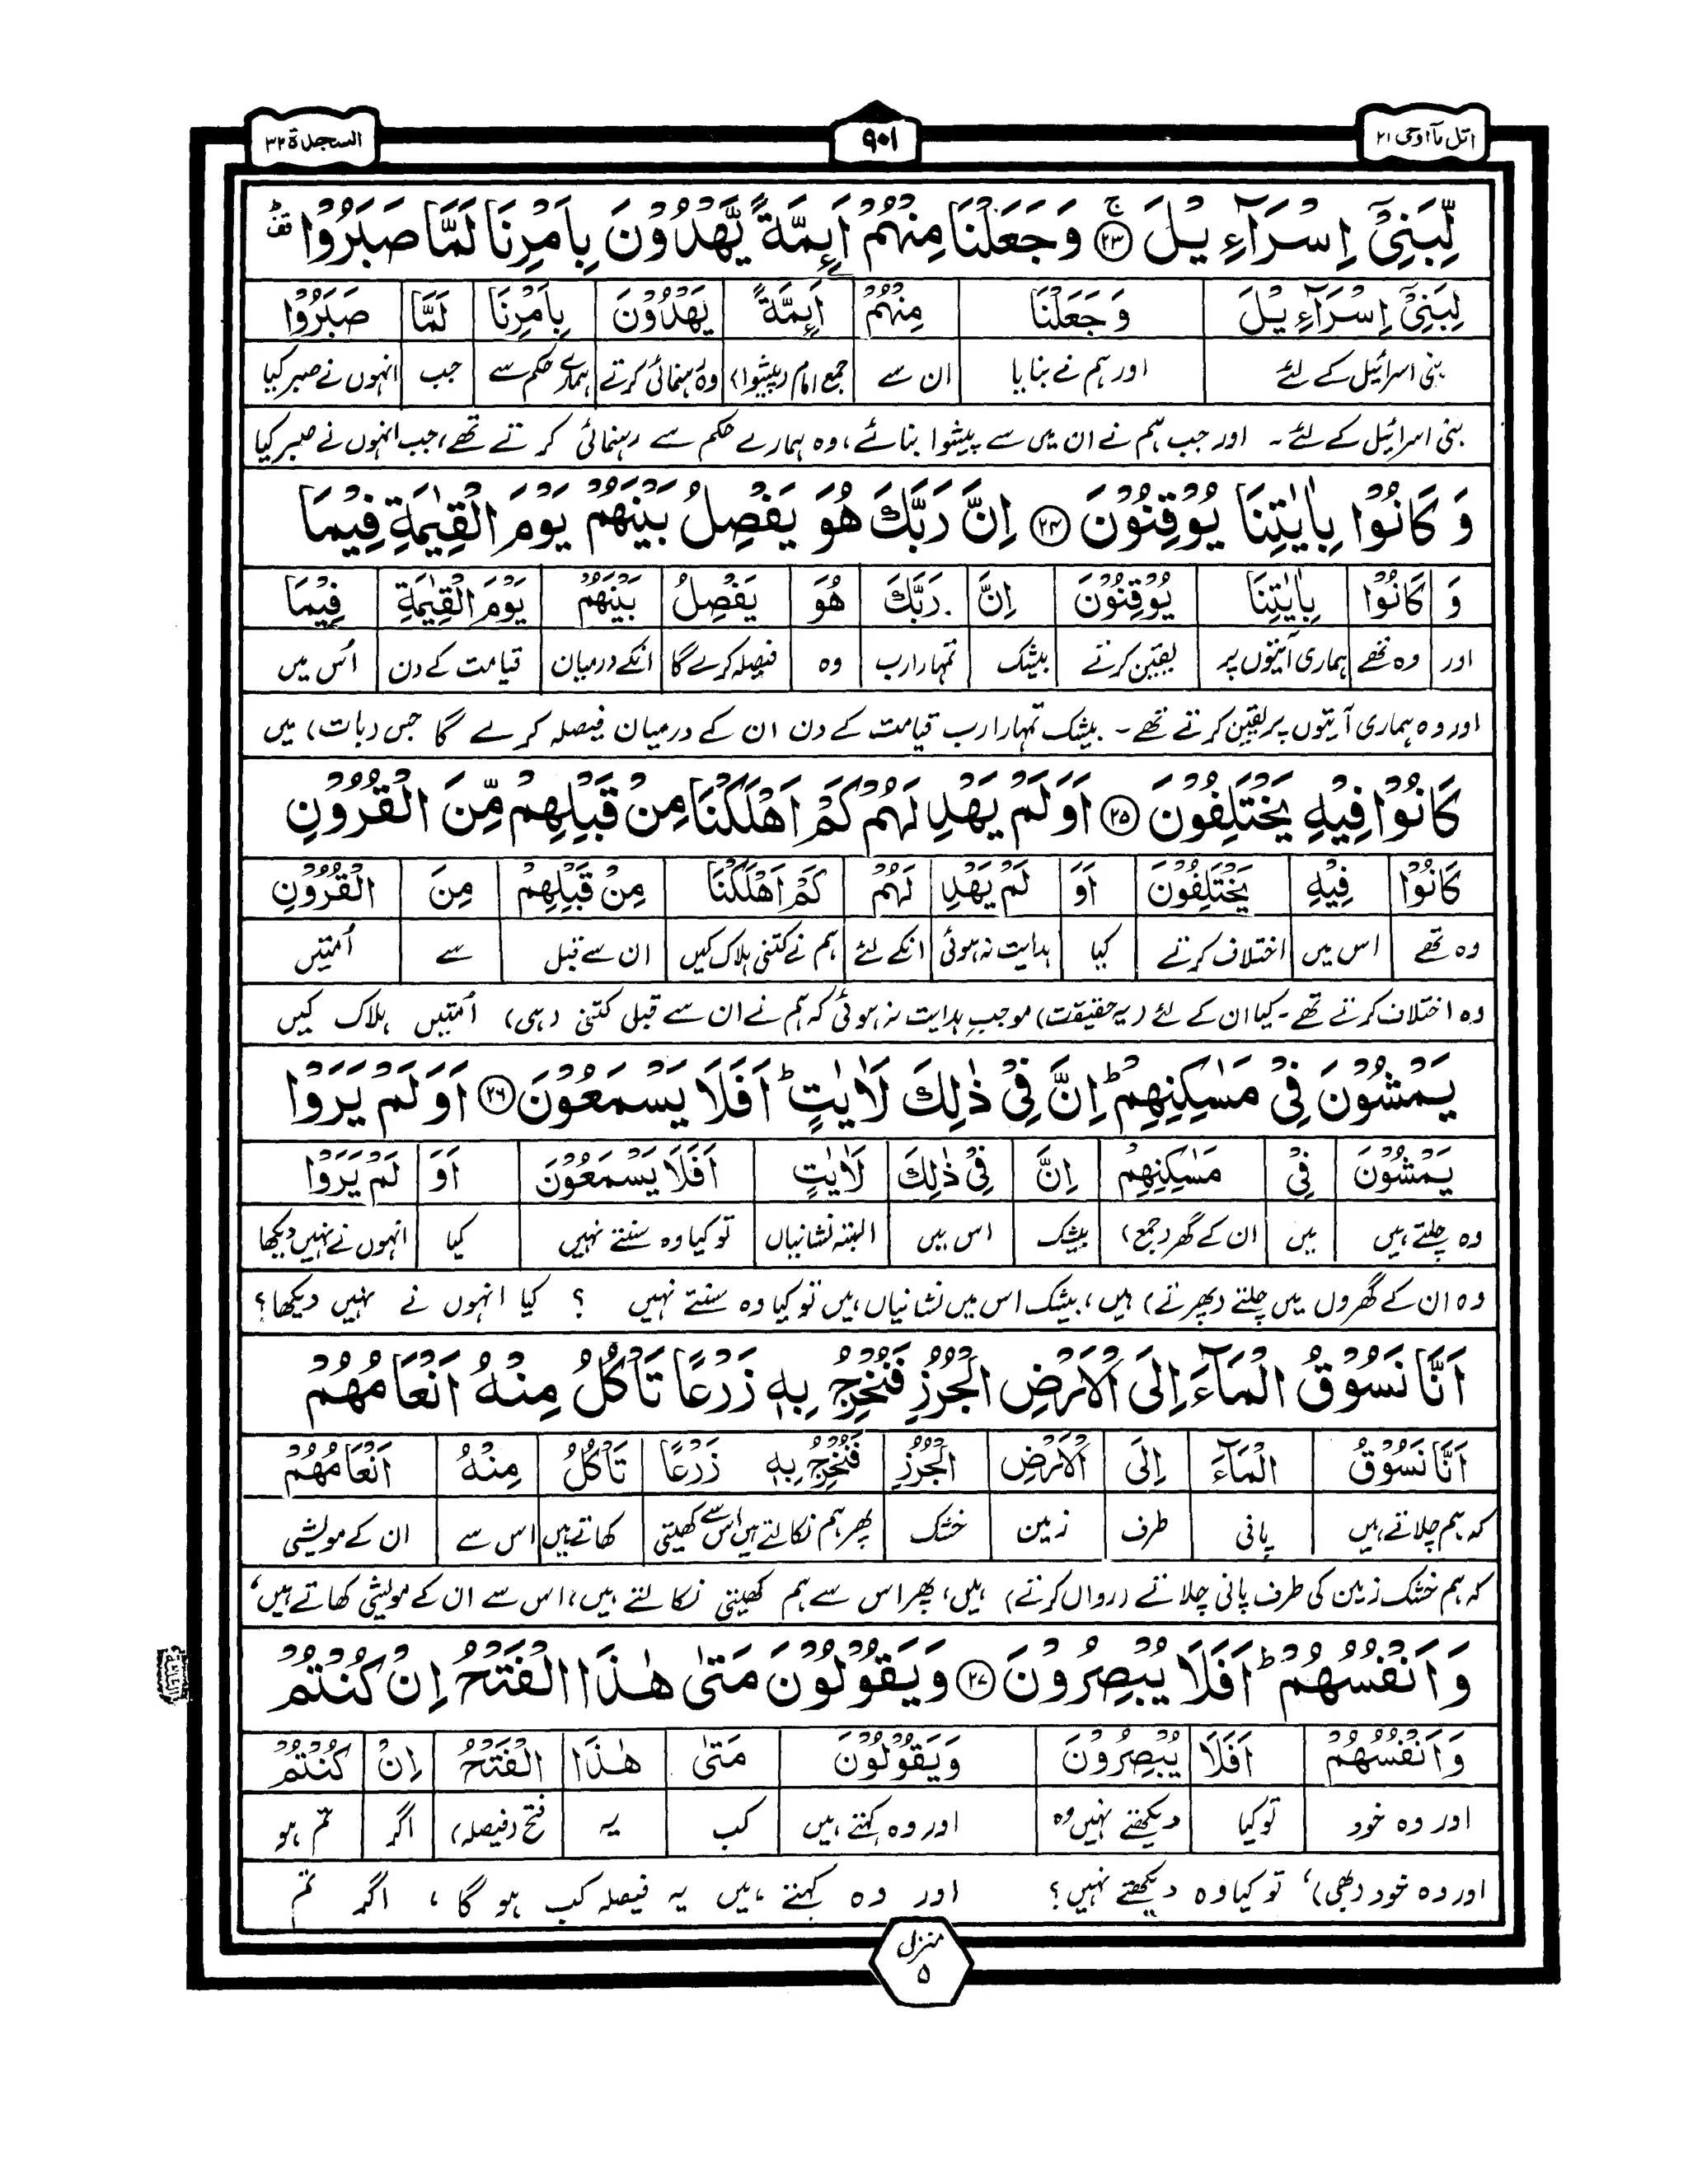 اتل مآ اوحی ۲۱
۹۰۱
السجدة ۳۲
لِّبَنِیْۤ اِسْرَآءِیْلَ ﴿۲۳﴾ۚ وَجَعَلْنَا مِنْهُمْ اَىِٕمَّةً یَّهْدُوْنَ بِاَمْرِنَا لَمَّا صَبَرُوْا ؕ۫
لِبَنِیْۤ اِسْرَآءِیْلَ | وَجَعَلْنَا | مِنْهُمْ | اَىِٕمَّةً | یَهْدُوْنَ | بِاَمْرِنَا | لَمَّا | صَبَرُوْا
بنی اسرائیل کے لئے | اور ہم نے بنایا | ان سے | جمع امام (پیشوا) | وہ رہنمائی کرتے | ہمارے حکم سے | جب | انہوں نے صبر کیا
بنی اسرائیل کے لئے۔ اور جب ہم نے ان میں سے پیشوا بنائے، وہ ہمارے حکم سے رہنمائی کرتے تھے، جب انہوں نے صبر کیا
وَ كَانُوْا بِاٰیٰتِنَا یُوْقِنُوْنَ ﴿۲۴﴾ اِنَّ رَبَّكَ هُوَ یَفْصِلُ بَیْنَهُمْ یَوْمَ الْقِیٰمَةِ فِیْمَا
وَ | كَانُوْا | بِاٰیٰتِنَا | یُوْقِنُوْنَ | اِنَّ | رَبَّكَ | هُوَ | یَفْصِلُ | بَیْنَهُمْ | یَوْمَ الْقِیٰمَةِ | فِیْمَا
اور | وہ تھے | ہماری آیتوں پر | یقین کرتے | بیشک | تمہارا رب | وہ | فیصلہ کرے گا | انکے درمیان | قیامت کے دن | اُس میں
اور وہ ہماری آیتوں پر یقین کرتے تھے۔ بیشک تمہارا رب قیامت کے دن ان کے درمیان فیصلہ کرے گا جس (بات) میں
كَانُوْا فِیْهِ یَخْتَلِفُوْنَ ﴿۲۵﴾ اَوَ لَمْ یَهْدِ لَهُمْ كَمْ اَهْلَكْنَا مِنْ قَبْلِهِمْ مِّنَ الْقُرُوْنِ
كَانُوْا | فِیْهِ | یَخْتَلِفُوْنَ | اَوَ | لَمْ یَهْدِ | لَهُمْ | كَمْ اَهْلَكْنَا | مِنْ قَبْلِهِمْ | مِنَ | الْقُرُوْنِ
وہ تھے | اس میں | اختلاف کرتے | کیا | ہدایت نہ ہوئی | انکے لئے | ہم نے کتنی ہلاک کیں | ان سے قبل | سے | اُمتیں
وہ اختلاف کرتے تھے۔ کیا ان کے لئے (یہ حقیقت) موجب ہدایت نہ ہوئی کہ ہم نے ان سے قبل کتنی (ہی) اُمتیں ہلاک کیں
یَمْشُوْنَ فِیْ مَسٰكِنِهِمْ ؕ اِنَّ فِیْ ذٰلِكَ لَاٰیٰتٍ ؕ اَفَلَا یَسْمَعُوْنَ ﴿۲۶﴾ اَوَ لَمْ یَرَوْا
یَمْشُوْنَ | فِیْ | مَسٰكِنِهِمْ | اِنَّ | فِیْ ذٰلِكَ | لَاٰیٰتٍ | اَفَلَا یَسْمَعُوْنَ | اَوَ | لَمْ یَرَوْا
وہ چلتے ہیں | میں | ان کے گھر (جمع) | بیشک | اس میں | البتہ نشانیاں | تو کیا وہ سنتے نہیں | کیا | انہوں نے نہیں دیکھا
وہ ان کے گھروں میں چلتے (پھرتے) ہیں، بیشک اس میں نشانیاں ہیں تو کیا وہ سنتے نہیں ؟ کیا انہوں نے نہیں دیکھا؟
اَنَّا نَسُوْقُ الْمَآءَ اِلَی الْاَرْضِ الْجُرُزِ فَنُخْرِجُ بِهٖ زَرْعًا تَاْكُلُ مِنْهُ اَنْعَامُهُمْ
اَنَّا نَسُوْقُ | الْمَآءَ | اِلَی | الْاَرْضِ | الْجُرُزِ | فَنُخْرِجُ بِهٖ زَرْعًا | تَاْكُلُ | مِنْهُ | اَنْعَامُهُمْ
کہ ہم چلاتے ہیں | پانی | طرف | زمین | خشک | پھر ہم نکالتے ہیں اس سے کھیتی | کھاتے ہیں | اس سے | ان کے مویشی
کہ ہم خشک زمین کی طرف پانی چلاتے (رواں کرتے) ہیں، پھر اس سے ہم کھیتی نکالتے ہیں، اس سے ان کے مویشی کھاتے ہیں،
وَ اَنْفُسُهُمْ ؕ اَفَلَا یُبْصِرُوْنَ ﴿۲۷﴾ وَ یَقُوْلُوْنَ مَتٰی هٰذَا الْفَتْحُ اِنْ كُنْتُمْ
وَ اَنْفُسُهُمْ | اَفَلَا | یُبْصِرُوْنَ | وَیَقُوْلُوْنَ | مَتٰی | هٰذَا | الْفَتْحُ | اِنْ | كُنْتُمْ
اور وہ خود | تو کیا | دیکھتے نہیں وہ | اور وہ کہتے ہیں | کب | یہ | فتح (فیصلہ) | اگر | تم ہو
اور وہ خود (بھی)، تو کیا وہ دیکھتے نہیں؟ اور وہ کہتے ہیں یہ فیصلہ کب ہو گا، اگر تم
منزل
۵